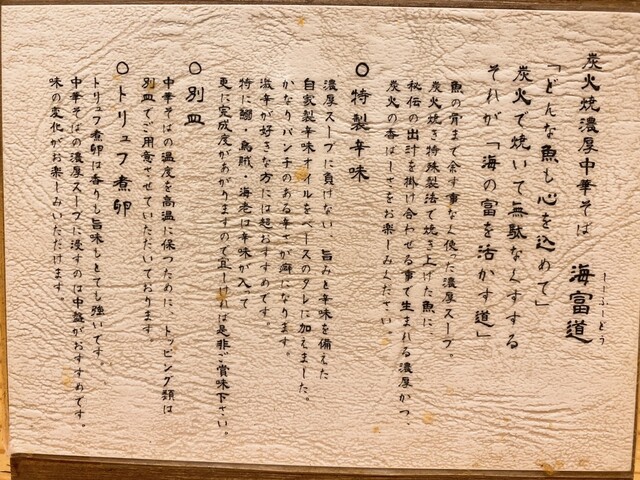 しーふーどう
炭火焼濃厚中華そば 海富道
「どんな魚も心を込めて」
炭火で焼いて無駄なくすする
それが「海の富を活かす道」
魚の骨まで余す事なく使った濃厚スープ。
炭火焼き特殊製法で焼き上げた魚に、
秘伝の出汁を掛け合わせる事で生まれる濃厚かつ、
炭火の香ばしさをお楽しみください。
○特製辛味
濃厚スープに負けない、旨みと辛味を備えた
自家製辛味オイルをベースのタレに加えました。
かなりパンチのある辛さが癖になります。
激辛が好きな方には超おすすめです。
特に鯛・烏賊・海老は辛味が入って
更に完成度があがりますので宜しければ是非ご賞味下さい。
○別皿
中華そばの温度を高温に保つために、トッピング類は
別皿でご用意させていただいております。
○トリュフ煮卵
トリュフ煮卵は香りも旨味もとても強いです。
中華そばの濃厚スープに浸すのは中盤がおすすめです。
味の変化がお楽しみいただけます。